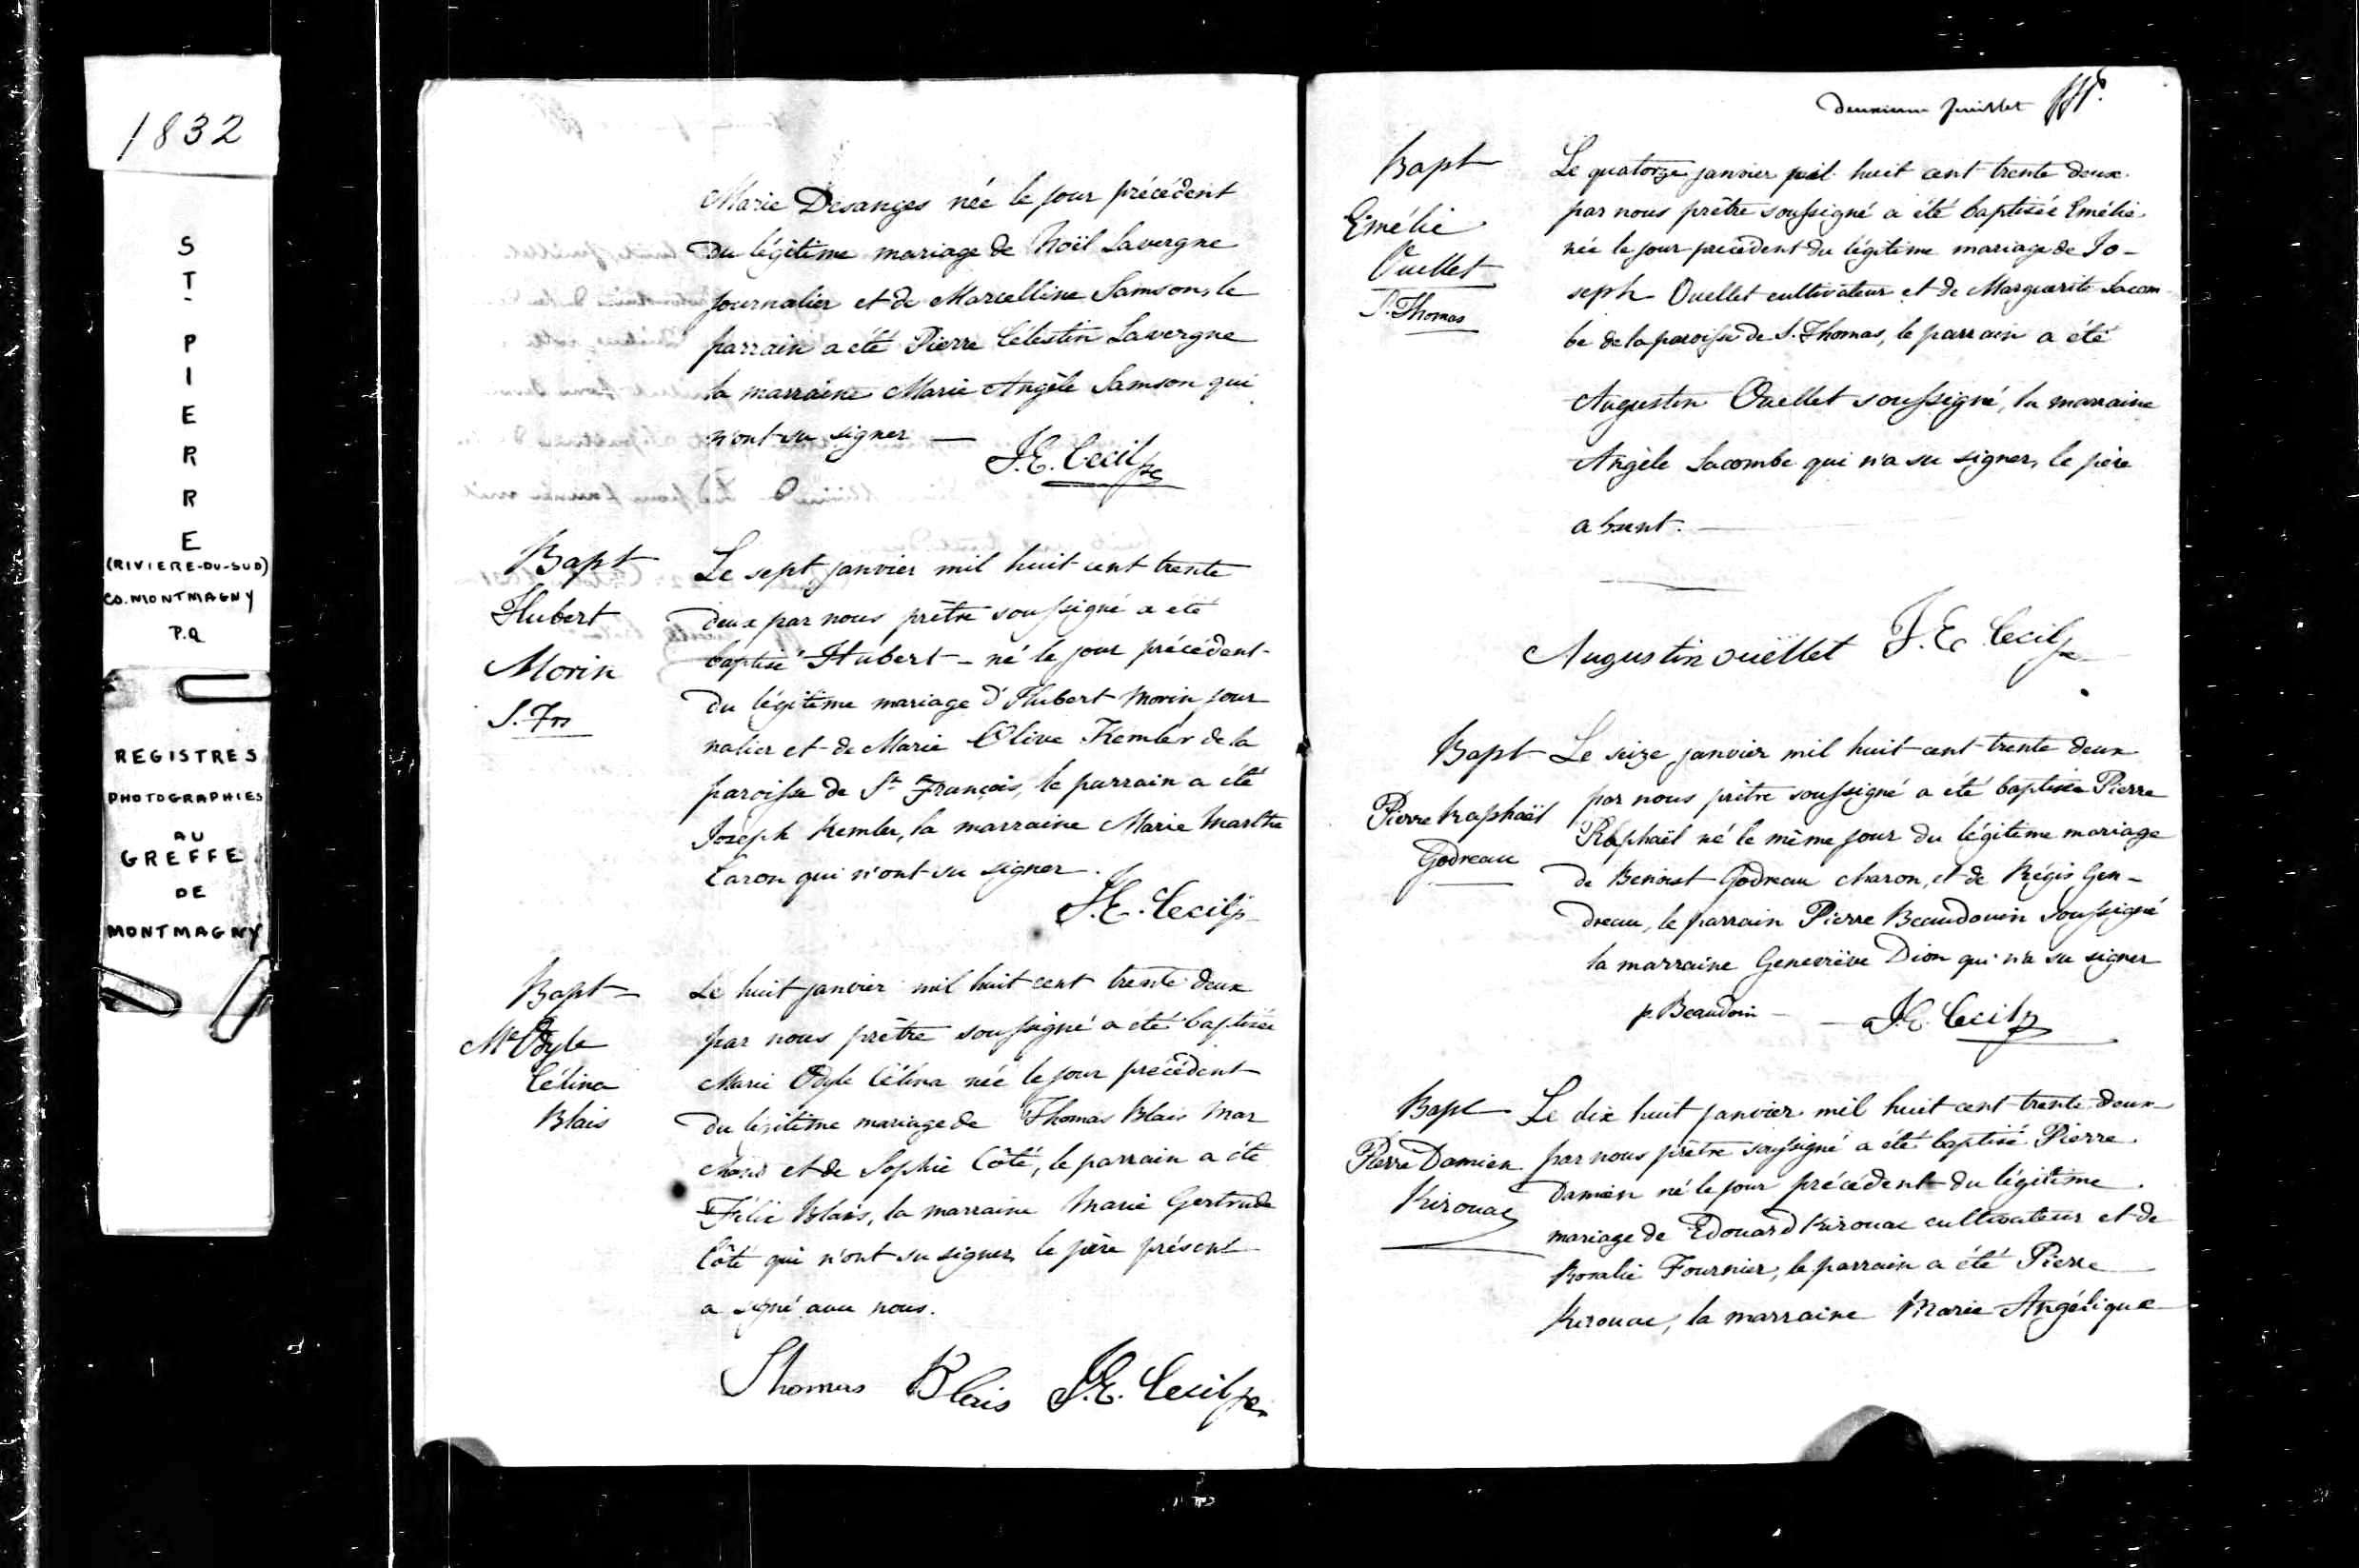 1832
ST-PIERRE
(RIVIERE-DU-SUD)
CO. MONTMAGNY
P.Q
REGISTRES
PHOTOGRAPHIES
AU
GREFFE
DE
MONTMAGNY
Marie Desanges née le jour précédent
du légitime mariage de Noël Lavergne
journalier et de Marcelline Samson, le
parrain a été Pierre Célestin Lavergne
la marraine Marie Angèle Samson qui
n'ont su signer —
J.E. Cecil ptre
Bapt
Hubert
Morin
S. Frs
Le sept janvier mil huit cent trente
deux par nous prêtre soussigné a été
baptisé Hubert - né le jour précédent
du légitime mariage d'Hubert Morin jour
nalier et de Marie Olive Kemler de la
paroisse de St François, le parrain a été
Joseph Kemler, la marraine Marie Marthe
Caron qui n'ont su signer.
J.E. Cecil ptre
Bapt
Mie Odyle
Célina
Blais
Le huit janvier mil huit cent trente deux
par nous prêtre soussigné a été baptisée
Marie Odyle Célina née le jour précédent
du légitime mariage de Thomas Blais mar
chand et de Sophie Côté, le parrain a été
Félix Blais, la marraine Marie Gertrude
Côté qui n'ont su signer, le père présent
a signé avec nous.
Thomas Blais J.E. Cecil ptre
Deuxieme feuillet
Bapt
Emélie
Ouellet
S. Thomas
Le quatorze janvier mil huit cent trente deux
par nous prêtre soussigné a été baptisée Emélie
née le jour précédent du légitime mariage de Jo-
seph Ouellet cultivateur et de Marguerite Lacom
be de la paroisse de S. Thomas, le parrain a été
Augustin Ouellet soussigné, la marraine
Angèle Lacombe qui n'a su signer, le père
absent.
Augustin ouëllet J.E. Cecil ptre
Bapt
Pierre Raphaël
Godreau
Le seize janvier mil huit cent trente deux
par nous prêtre soussigné a été baptisée Pierre
Raphaël né le même jour du légitime mariage
de Benoist Godreau charon, et de Régis Gen-
dreau, le parrain Pierre Beaudouin soussigné
la marraine Geneviève Dion qui n'a su signer
p. Beaudoin — J.E. Cecil ptre
Bapt
Pierre Damien
Kirouac
Le dix huit janvier mil huit cent trente deux
par nous prêtre soussigné a été baptisé Pierre
Damien né le jour précédent du légitime
mariage de Edouard Kirouac cultivateur et de
Rosalie Fournier, le parrain a été Pierre
Kirouac, la marraine Marie Angélique